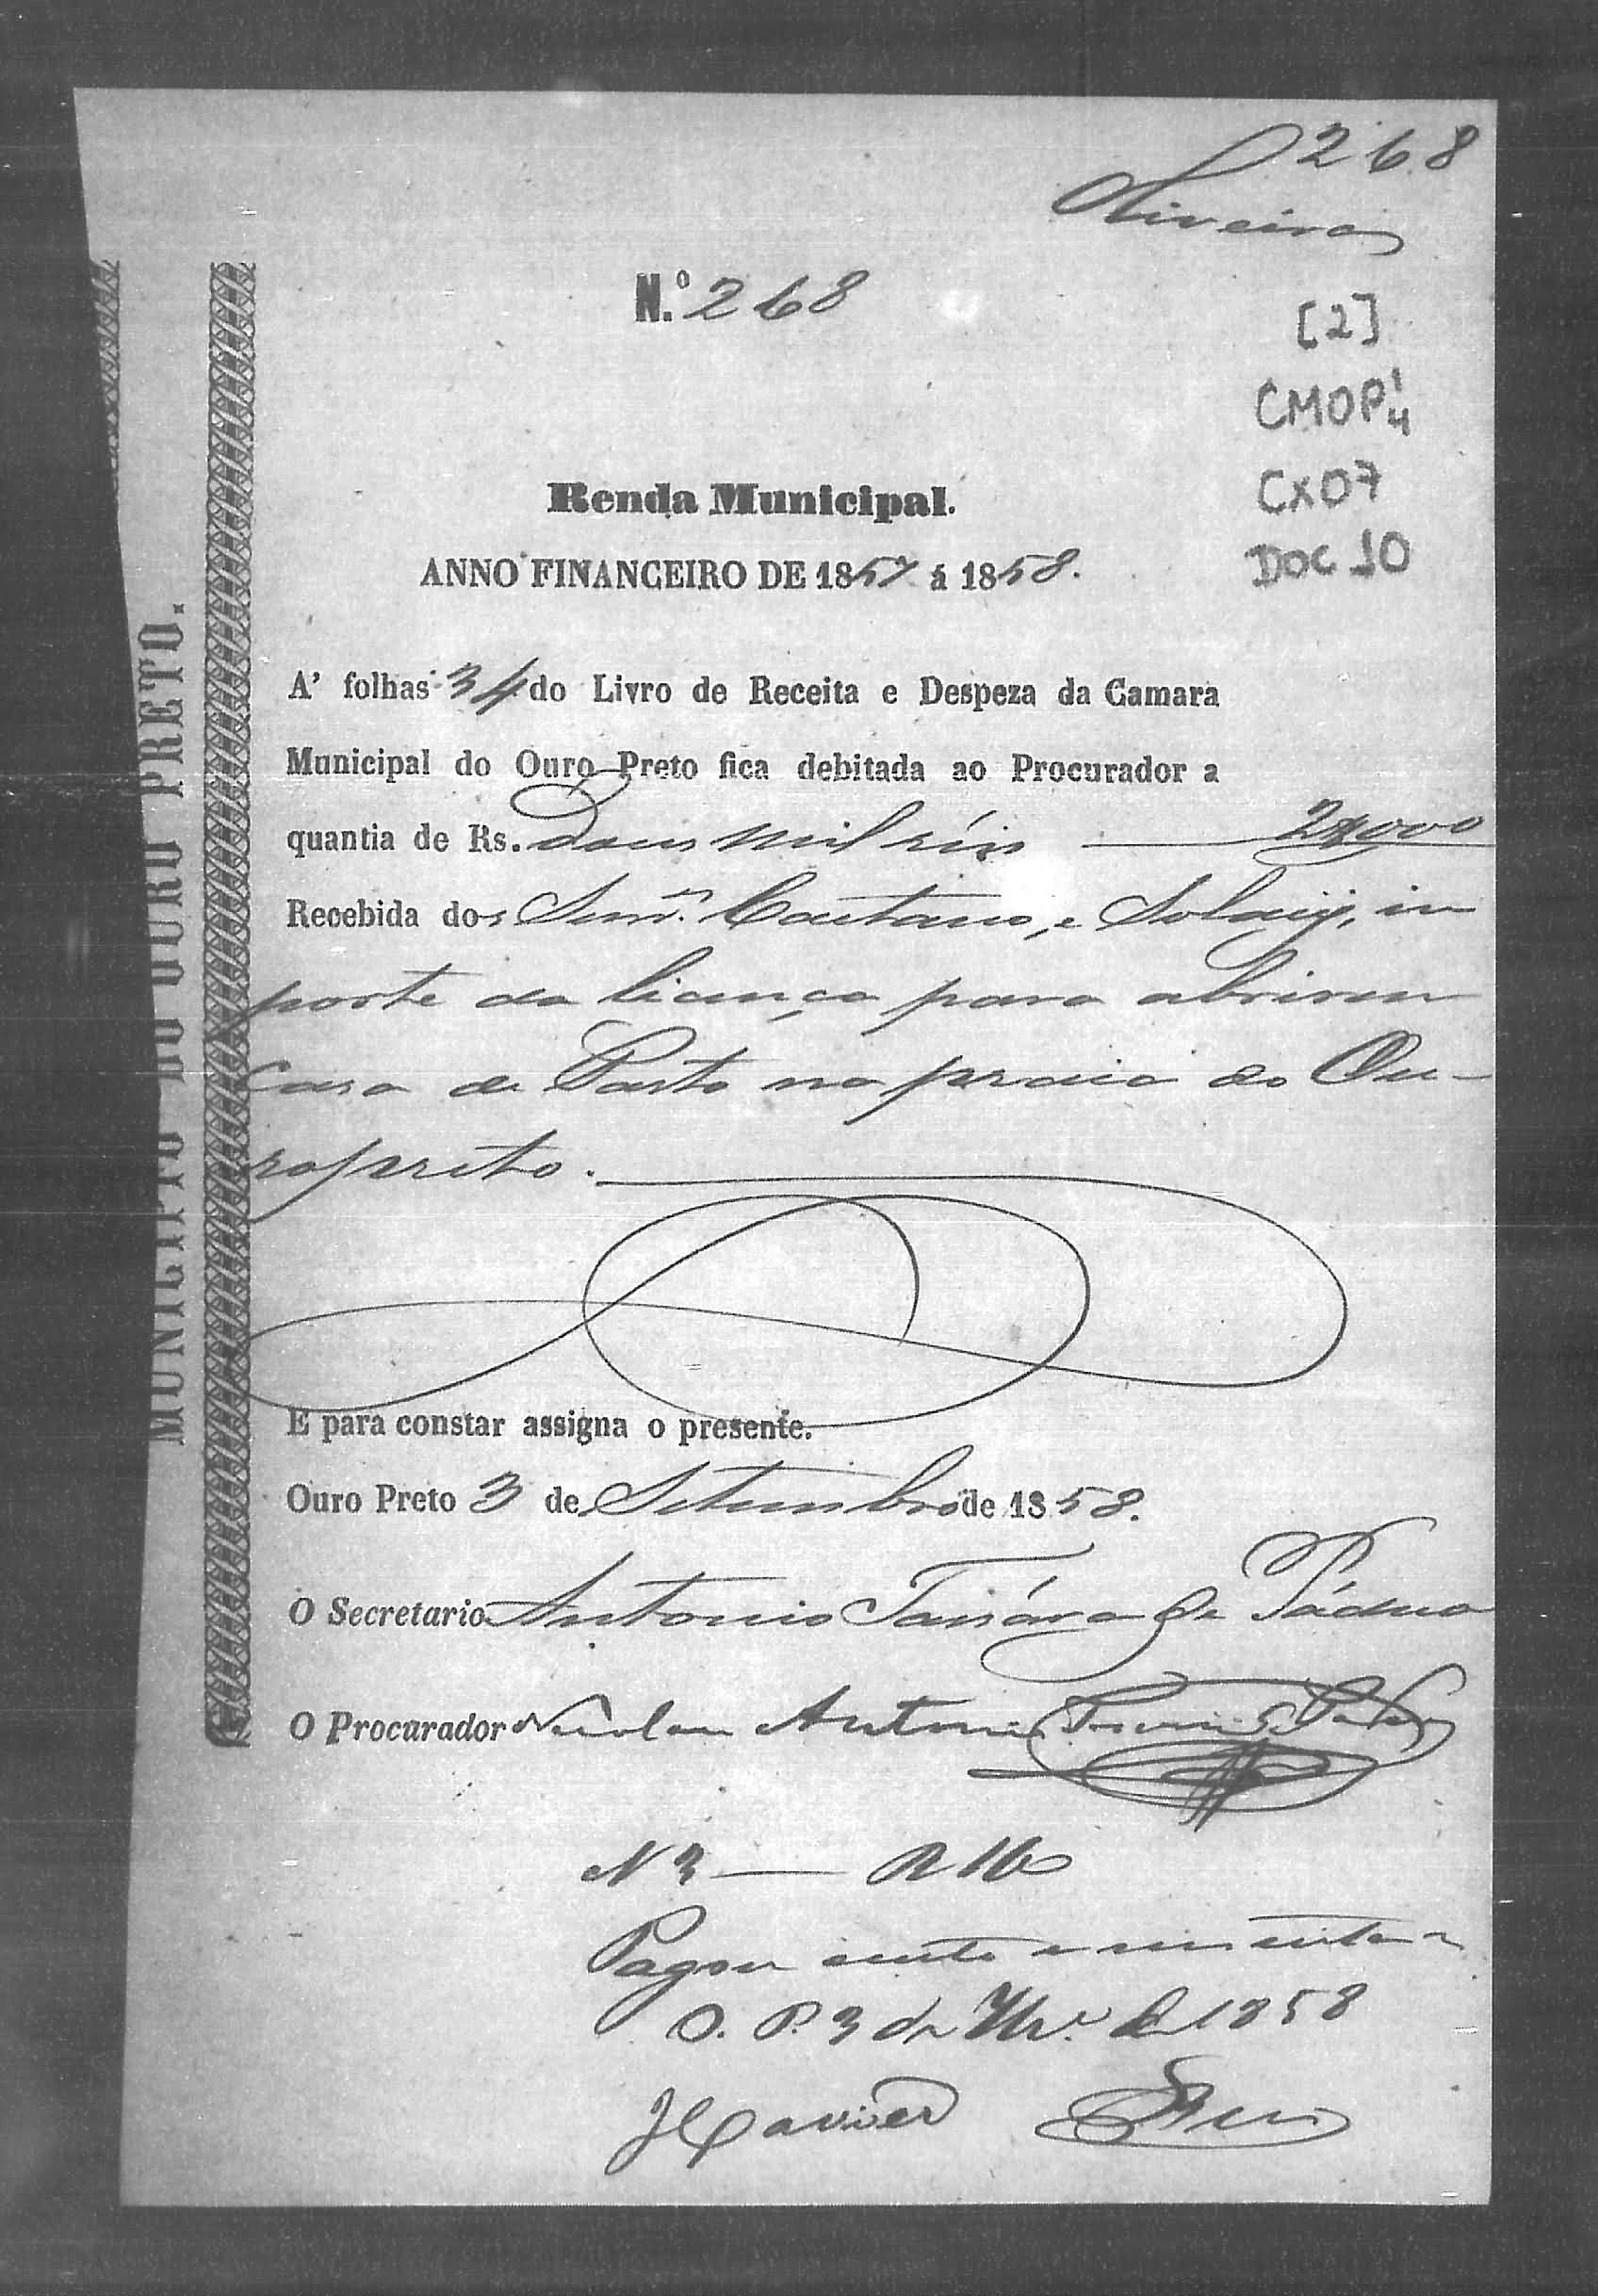 268
Oliveira
N.º 268
[2]
CMOP 1/4
CX07
DOC 10
Renda Municipal.
ANNO FINANCEIRO DE 1857 á 1858.
A' folhas 34 do Livro de Receita e Despeza da Camara
Municipal do Ouro Preto fica debitada ao Procurador a
quantia de Rs. Dous mil réis 2$000
Recebida dos Senr.es Caetano, e im
porte da licença para abrirem
Casa de Pasto na praia do Ou-
ropreto.
E para constar assigna o presente.
Ouro Preto 3 de Setembro de 1858.
O Secretario Antonio de Pádua
O Procurador Nicolau Antonio
MUNICIPIO DO OURO PRETO.
N 3 — R 160
Pagou cento e sessenta r
O. P. 3 de 7br.º de 1858
Xavier